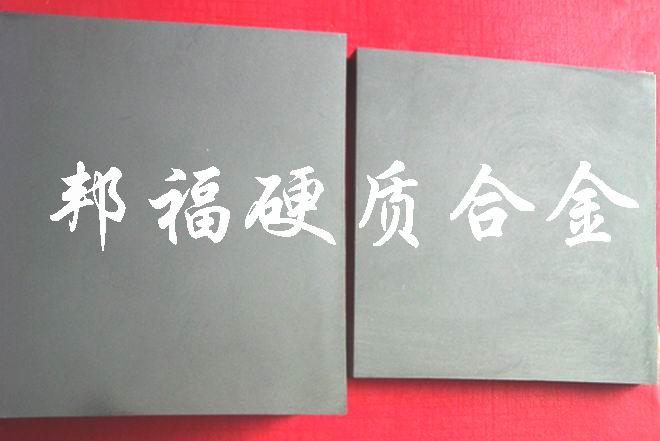 邦福硬质合金